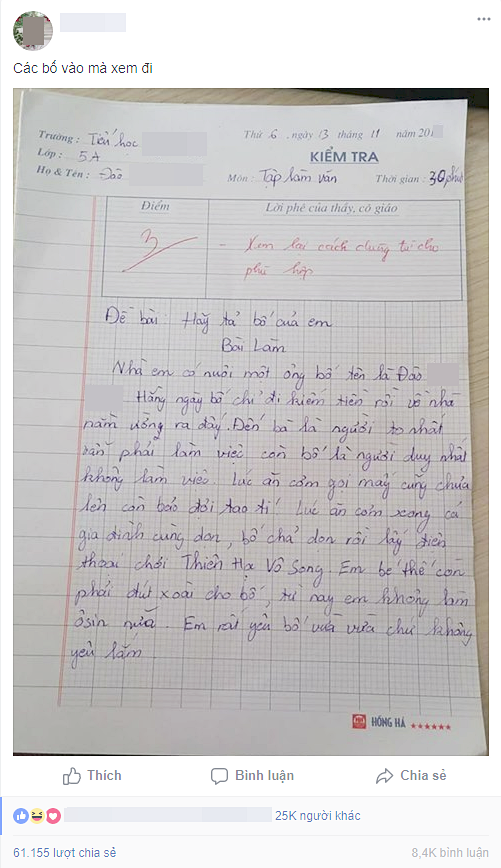 Các bố vào mà xem đi
Trường : Tiểu học
Thứ 6, ngày 13 tháng 11 năm 201
Lớp : 5A
KIỂM TRA
Họ & Tên : Đào
Môn : Tập làm văn
Thời gian : 30 phút
Điểm
Lời phê của thầy, cô giáo
3
- Xem lại cách dùng từ cho
phù hợp
Đề bài : Hãy tả bố của em
Bài Làm
Nhà em có nuôi một ông bố tên là Đào
Hằng ngày bố chỉ đi kiếm tiền rồi về nhà
nằm ưỡng ra đấy. Đến bà là người to nhất
vẫn phải làm việc còn bố là người duy nhất
không làm việc. Lúc ăn cơm gọi mãy cũng chưa
lên còn bảo đợi tao tí! Lúc ăn cơm xong cả
gia đình cùng dọn, bố chả dọn rồi lấy điện
thoại chơi Thiên Hạ Vô Song. Em bé thế còn
phải đút xoài cho bố, từ nay em không làm
ôsin nữa. Em rất yêu bố vừa vừa chứ không
yêu lắm
HỒNG HÀ
Thích
Bình luận
Chia sẻ
25K người khác
61.155 lượt chia sẻ
8,4K bình luận